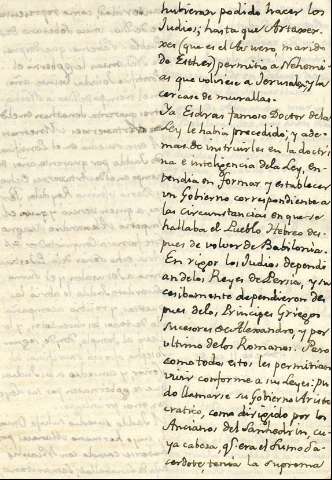 hubieran podido hacer los
Judios; hasta que Artaxer-
xes (que es el Asuero, marido
de Esther) permitio a Nehemi-
as que volviese a Jerusalen, y la
cercase de murallas.
Ya Esdras famoso Doctor de la
Ley le habia precedido; y ade-
mas de instruirles en la doctri-
na e inteligencia de la Ley, en-
tendia en formar y establecer
un Gobierno correspondiente a
las circunstancias en que se
hallaba el Pueblo Hebreo des-
pues de volver de Babilonia.
En rigor los Judios depend-
ian de los Reyes de Persia, y su-
cesibamente dependieron des-
pues de los Principes Griegos
sucesores de Alexandro, y por
ultimo de los Romanos. Pero
como todos estos les permitian
vivir conforme a sus Leyes; pu-
do llamarse su Gobierno Aristo-
cratico, como dirigido por los
Ancianos del Sanhedrin, cu-
ya cabeza, qe. era el Sumo Sa-
cerdote, tenia la suprema